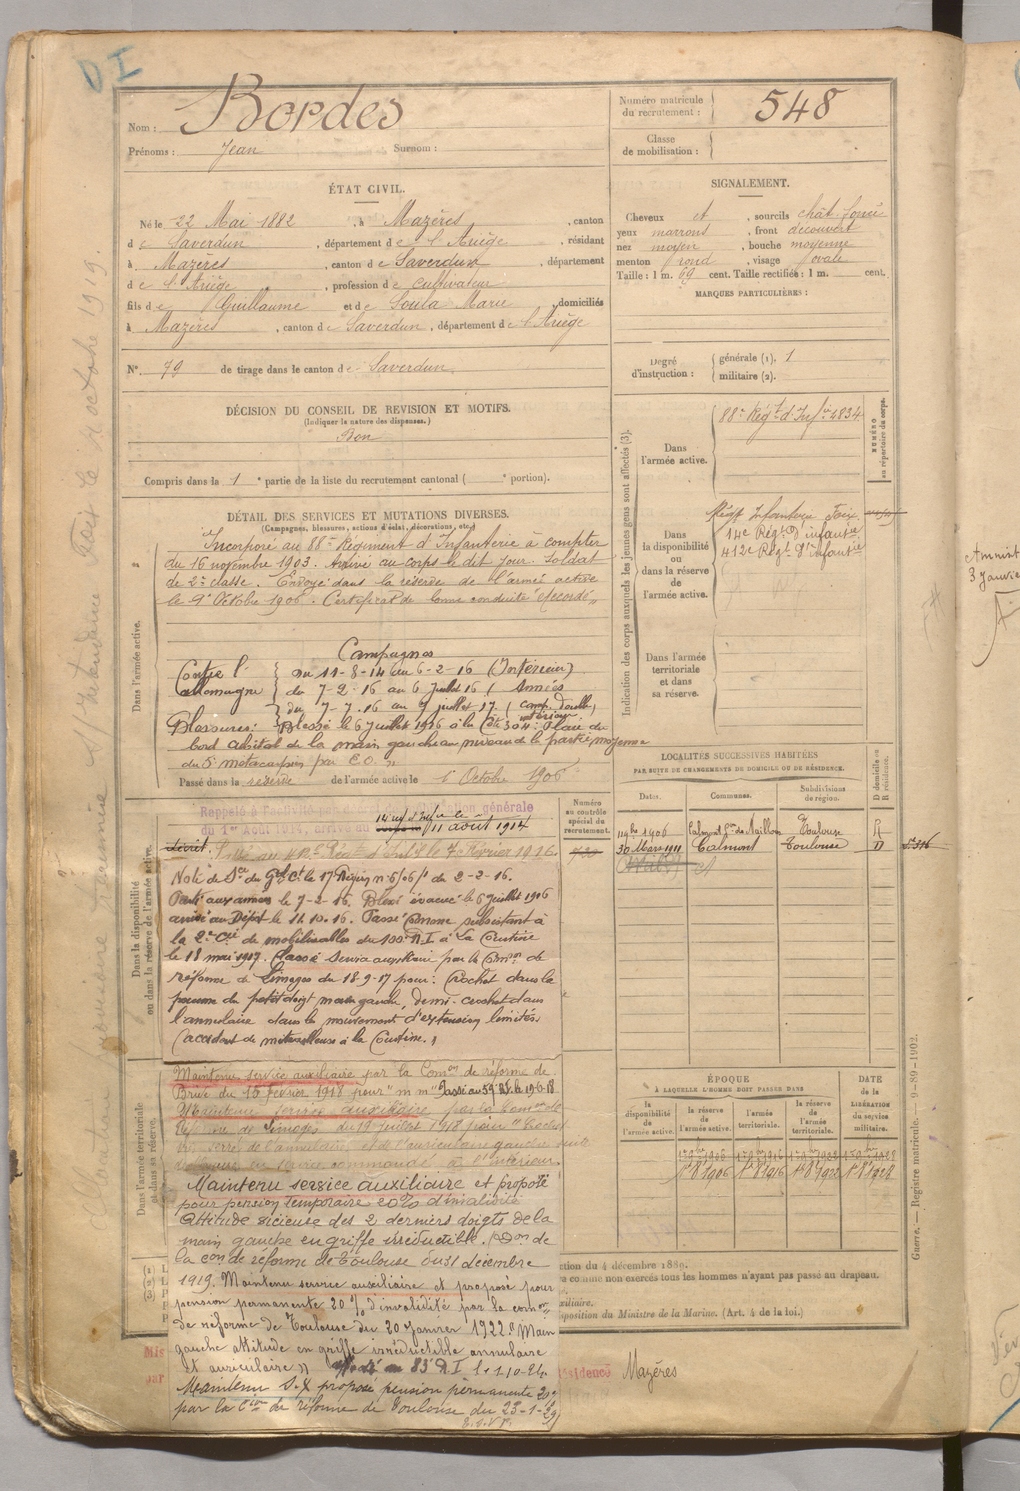 D I
Nom : Bordes
Prénoms : Jean Surnom :
Numéro matricule du recrutement : 548
Classe de mobilisation :
ÉTAT CIVIL.
Né le 22 Mai 1882, à Mazères, canton
de Saverdun, département de l'Ariège, résidant
à Mazères, canton de Saverdun, département
de l'Ariège, profession de cultivateur
fils de Guillaume et de Soula Marie, domiciliés
à Mazères, canton de Saverdun, département de l'Ariège
N° 79 de tirage dans le canton de Saverdun
SIGNALEMENT.
Cheveux et, sourcils chât. foncé
yeux marrons, front découvert
nez moyen, bouche moyenne
menton rond, visage ovale
Taille : 1 m. 69 cent. Taille rectifiée : 1 m. cent.
MARQUES PARTICULIÈRES :
Degré d'instruction : générale (1). 1
militaire (2).
DÉCISION DU CONSEIL DE REVISION ET MOTIFS.
(Indiquer la nature des dispenses.)
Bon
Compris dans la 1e partie de la liste du recrutement cantonal ( e portion).
DÉTAIL DES SERVICES ET MUTATIONS DIVERSES.
(Campagnes, blessures, actions d'éclat, décorations, etc.)
Dans l'armée active.
Incorporé au 88e Régiment d'Infanterie à compter
du 16 novembre 1903. Arrivé au corps le dit jour. Soldat
de 2e classe. Envoyé dans la réserve de l'armée active
le 1er Octobre 1906. Certificat de bonne conduite "Accordé"
Campagnes
Contre l'Allemagne
du 11-8-14 au 6-2-16 (Intérieur)
du 7-2-16 au 6 juillet 16 (Armées
du 7-7-16 au 9 juillet 17 (camp. double,
intérieur
Blessures : Blessé le 6 Juillet 1916 à la Cote 304 : Plaie du
bord cubital de la main gauche au niveau de la partie moyenne
du 5e métacarpien par E.O.
Passé dans la réserve de l'armée active le 1er Octobre 1906
Indication des corps auxquels les jeunes gens sont affectés (3).
NUMÉRO au répertoire du corps.
Dans l'armée active.
88e Régt d'Infie 4834
Dans la disponibilité ou dans la réserve de l'armée active.
Régt Infanterie Foix
14e Régt d'infantie
412e Régt d'Infantie
Dans l'armée territoriale et dans sa réserve.
LOCALITÉS SUCCESSIVES HABITÉES
PAR SUITE DE CHANGEMENTS DE DOMICILE OU DE RÉSIDENCE.
Dates. Communes. Subdivisions de région. D domicile ou R résidence.
1906 Toulouse R
30 Mars 1911 Calmont Toulouse D
Numéro au contrôle spécial du recrutement.
Dans la disponibilité ou dans la réserve de l'armée active.
Rappelé à l'activité par décret de mobilisation générale
du 1er Août 1914, arrivé au 11 août 1914
7 Février 1916.
Note de Sce du Gal Ct le 17e Région n° 6/06/1 de 2-2-16.
Parti aux armées le 7-2-16. Blessé évacué le 6 juillet 1916
arrivé au Dépôt le 11.10.16. Passé comme subsistant à
la 2e Cie de mobilisables du 100e R.I. à La Courtine
le 18 mai 1917. Classé Service auxiliaire par la Comon de
réforme de Limoges du 18-9-17 pour : Crochet dans la
paume du petit doigt main gauche, demi-crochet dans
l'annulaire dans le mouvement d'extension limités.
(accident de mitrailleuse à la Courtine.)
Dans l'armée territoriale et dans sa réserve.
Maintenu service auxiliaire par la Comon de réforme de
Brive du 16 février 1918 pour "m m" Passé au 59e R.I. le 19-6-18
Maintenu service auxiliaire par la Comon de
Réforme de Limoges du 19 juillet 1918 pour
Maintenu service auxiliaire et proposé
pour pension temporaire 20% d'invalidité
Attitude vicieuse des 2 derniers doigts de la
main gauche en griffe irréductible. Don de
la Con de réforme de Toulouse du 31 décembre
1919. Maintenu service auxiliaire et proposé pour
pension permanente 20% d'invalidité par la comon
de réforme de Toulouse du 20 Janvier 1922. "Main
gauche attitude en griffe irréductible annulaire
et auriculaire" 83e R I
Maintenu S.X proposé pension permanente
par la Cion de réforme de Toulouse du 23-1-29
ÉPOQUE
À LAQUELLE L'HOMME DOIT PASSER DANS
la disponibilité de l'armée active. la réserve de l'armée active. l'armée territoriale. la réserve de l'armée territoriale.
DATE de la LIBÉRATION du service militaire.
1er 8bre 1906 1er 8bre 1916 1er 8bre 1922 1er 8bre 1928
ction du 4 décembre 1889.
comme non exercés tous les hommes n'ayant pas passé au drapeau.
xiliaire.
sposition du Ministre de la Marine. (Art. 4 de la loi.)
Résidence Mazères
Guerre. — Registre matricule. — 9-89-1902.
Amnisti
3 Janvie